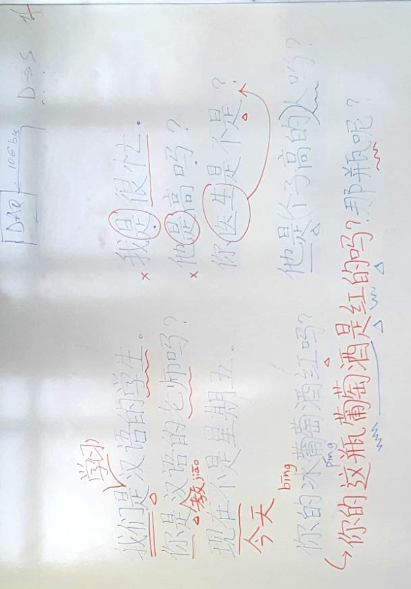 学习
我们是汉语的学生。
你是汉语的老师吗?
教 jiāo
现在不是星期五。
今天
我是很个上。
他是高吗?
你医生是不是?
他是个子高的人吗?
bīng
你的冰葡萄酒红吗?
píng
你的这瓶葡萄酒是红的吗?那瓶呢?